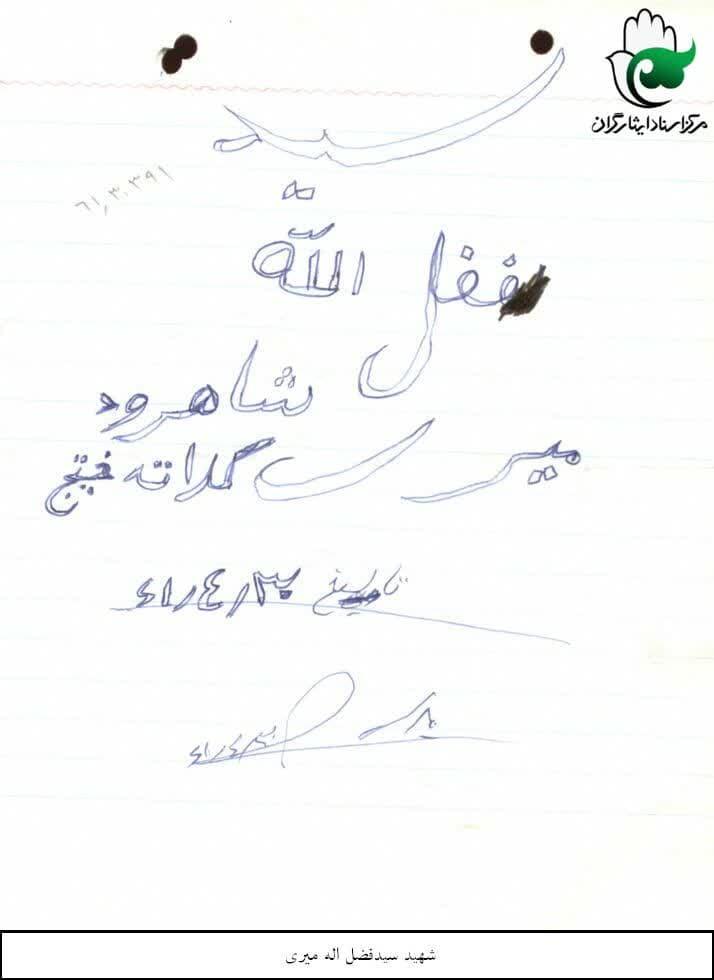 مرکز اسناد ایثارگران
سید
۶۱٫۳۰۳۹۱
فضل اللّه
شاهرود
میری کلاته خیج
تاریخ ۶۱/۴/۳۰
۶۱/۴/۳۰
شهید سیدفضل اله میری